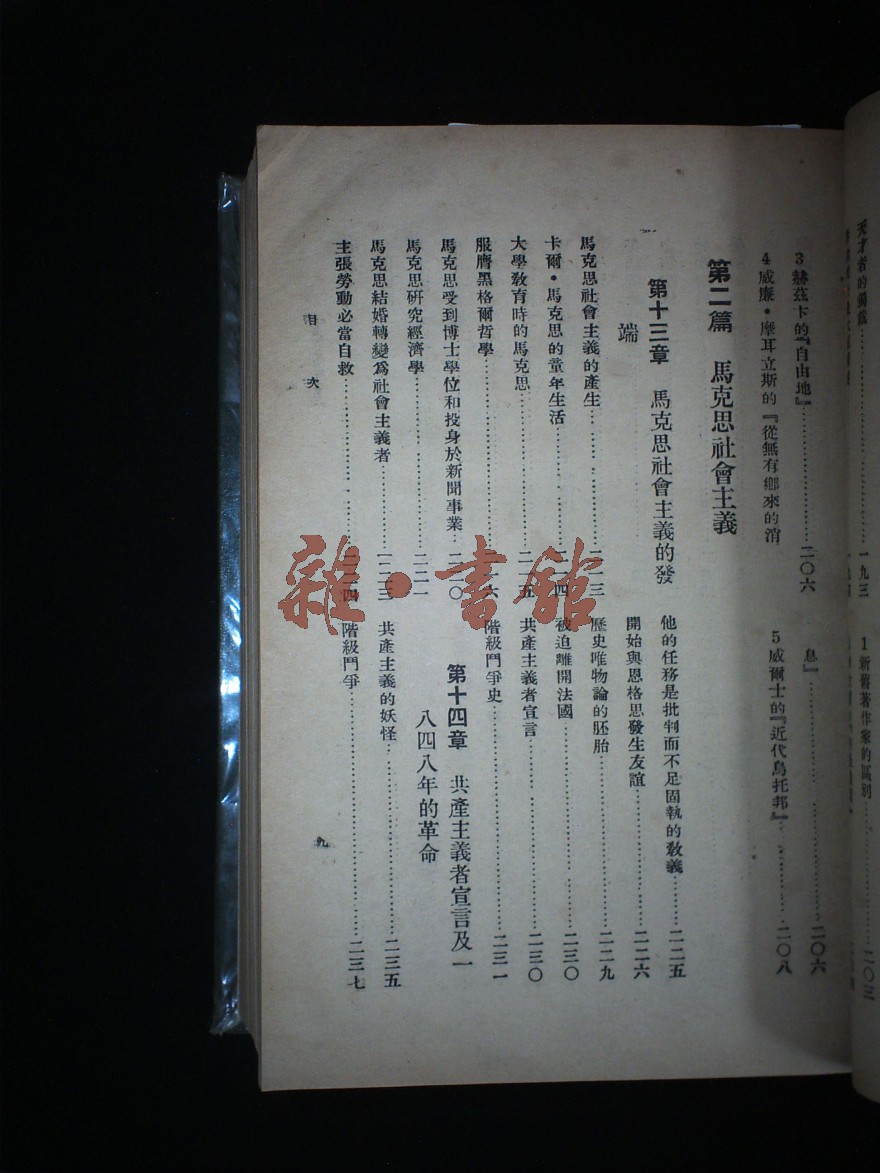 一九三
1 新舊著作家的區別……二〇三
3 赫茲卡的『自由地』……二〇六
4 威廉・摩耳立斯的『從無有鄉來的消
息』……二〇六
5 威爾士的『近代烏托邦』……二〇八
第二篇 馬克思社會主義
第十三章 馬克思社會主義的發
端
馬克思社會主義的產生……二一三
卡爾・馬克思的童年生活……二一四
大學教育時的馬克思……二一五
服膺黑格爾哲學……二一六
馬克思受到博士學位和投身於新聞事業……二二〇
馬克思研究經濟學……二二一
馬克思結婚轉變爲社會主義者……二二三
主張勞動必當自救……二二四
他的任務是批判而不足固執的教義……二二五
開始與恩格思發生友誼……二二六
歷史唯物論的胚胎……二二九
被迫離開法國……二三〇
共產主義者宣言……二三〇
階級鬥爭史……二三一
第十四章 共產主義者宣言及一
八四八年的革命
共產主義的妖怪……二三五
階級鬥爭……二三七
目次
九
雜・書館